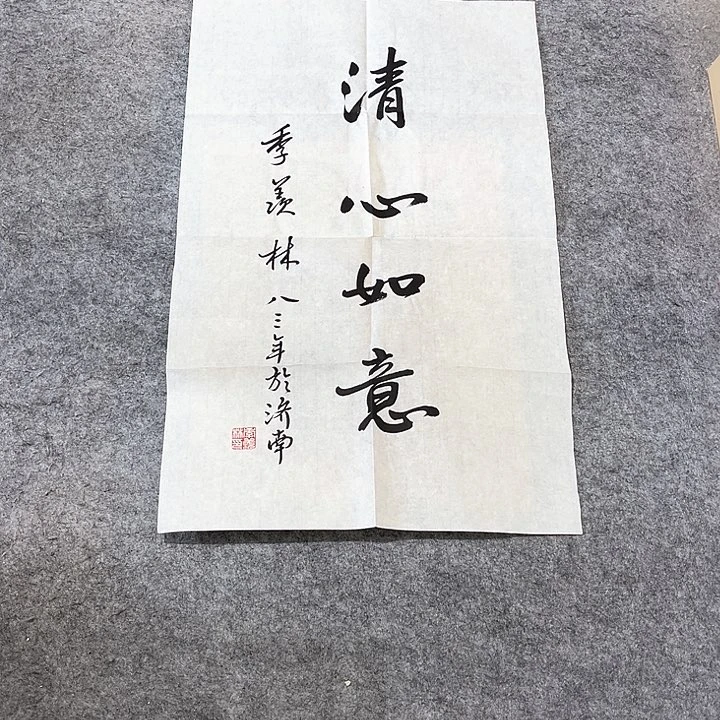 清心如意
季羡林八三年於济南